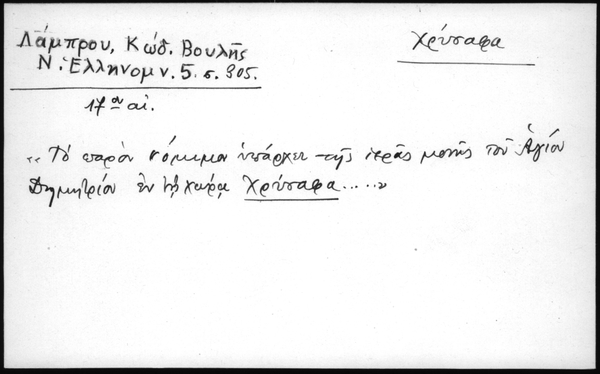 Λάμπρου, Κώδ. Βουλῆς
Χρύσαφα
Ν. Ἑλληνομν. 5. σ. 305.
17ου αἰ.
„ Τὸ παρὸν νόμιμον ὑπάρχει τῆς ἱερᾶς μονῆς τοῦ Ἁγίου
Δημητρίου ἐν τῇ χώρᾳ Χρύσαφα.....„